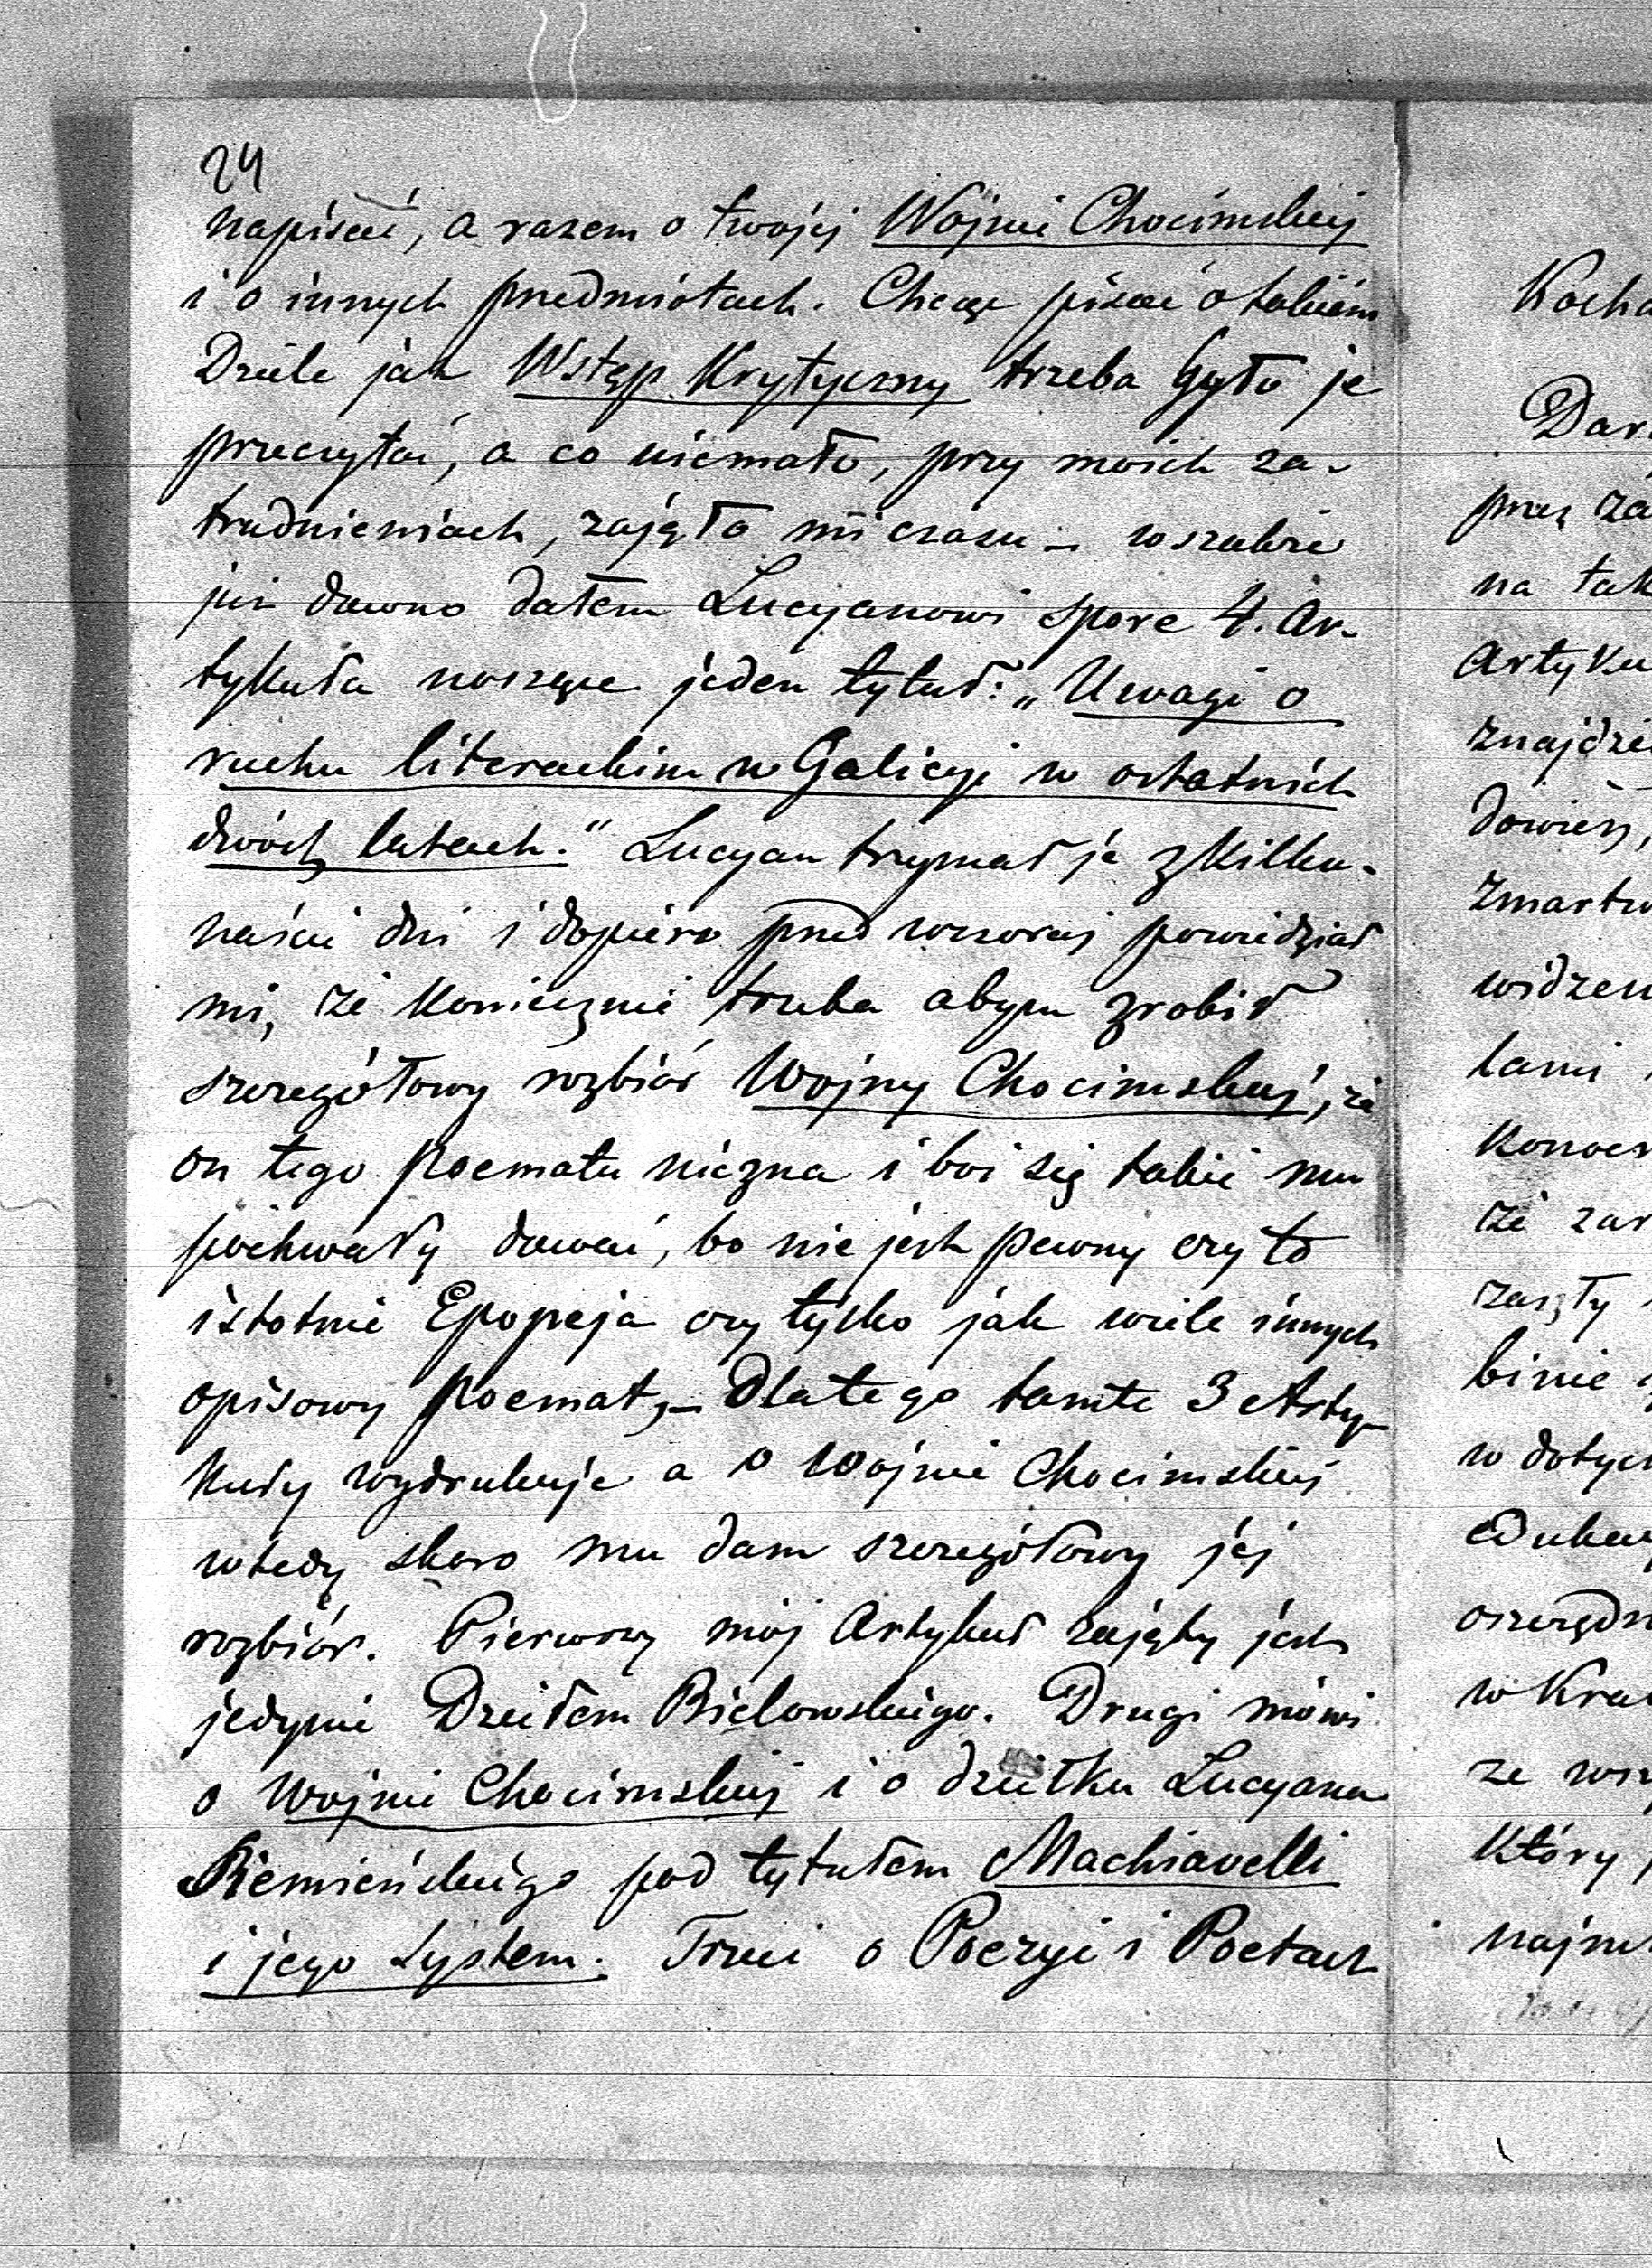 24
napisać, a razem o twojéj Wojnie Chocimskiéj
i o innych przedmiotach. Chcąc pisać o takiém
Dziele jak Wstęp Krytyczny trzeba było je
przeczytać, a co niemało, przy moich za-
trudnieniach, zajęło mi czasu – wszakże
już dawno dałem Lucyanowi spore 4. Ar-
tykuła noszące jeden tytuł: „Uwagi o
ruchu literackim w Galicyi w ostatnich
dwóch latach.“ Lucyan trzymał je z kilka-
naście dni i dopiero przedwczoraj powiedział
mi, że koniecznie trzeba abym zrobił
szczegółowy rozbiór Wojny Chocimskiéj, że
on tego poematu niezna i boi się takie mu
pochwały dawać, bo nie jest pewny czy to
istotnie Epopeja czy tylko jak wiele innych
opisowy poemat, – Dlatego tamte 3 Arty-
kuły wydrukuje a o Wojnie Chocimskiéj
wtedy skoro mu dam szczegółowy jéj
rozbiór. Pierwszy mój Artykuł zajęty jest
jedynie Dziełem Bielowskiego. Drugi mówi
o Wojnie Chocimskiéj i o dziełku Lucyana
Siemieńskiego pod tytułem Machiavelli
i jego System. Trzeci o Poezyi i Poetach
Kocha
Dar
przez za
na tak
Artyku
znajdzie
dowiesz,
zmartw
widzen
tami
koncer
że zar
zaszły
binie
w dotyc
Edukac
oszczędn
w Kra
ze wsz
który p
najm